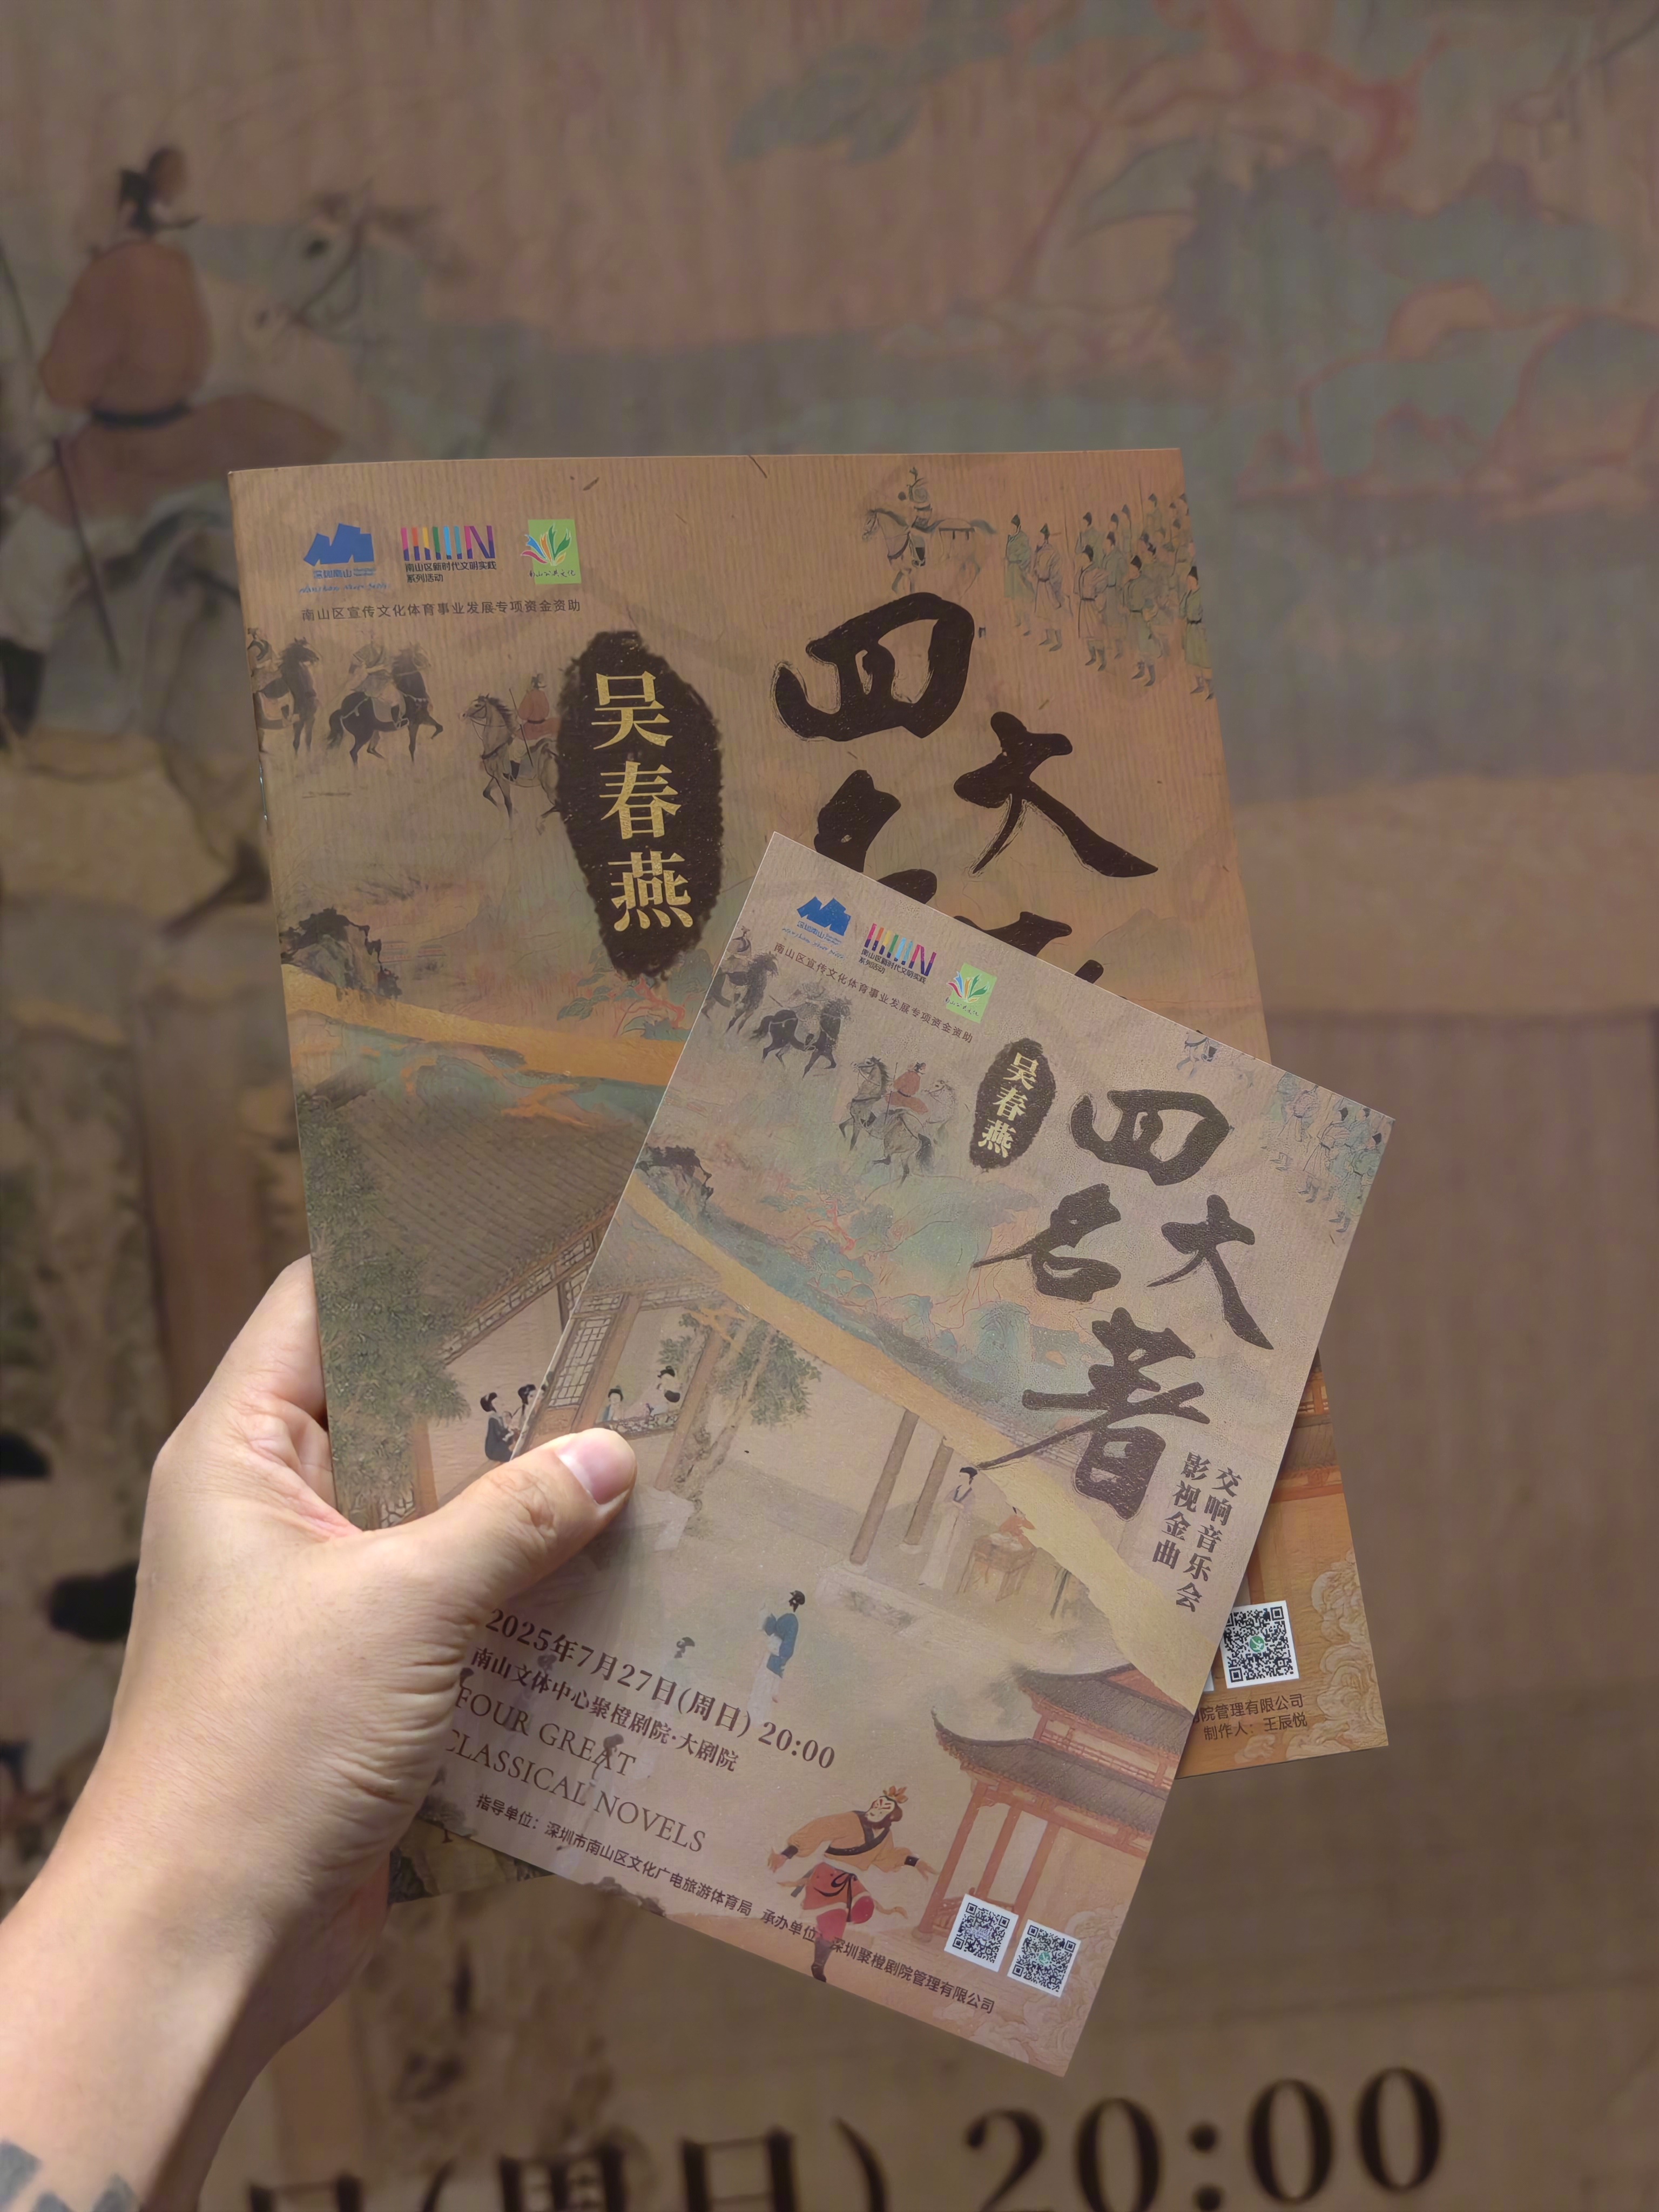 深圳南山
南山区新时代文明实践
系列活动
南山公共文化
南山区宣传文化体育事业发展专项资金资助
吴春燕
四大
深圳南山
南山区新时代文明实践
系列活动
南山公共文化
南山区宣传文化体育事业发展专项资金资助
吴春燕
四大
名著
交响音乐会
影视金曲
2025年7月27日(周日) 20:00
南山文体中心聚橙剧院·大剧院
FOUR GREAT
CLASSICAL NOVELS
指导单位：深圳市南山区文化广电旅游体育局 承办单位：深圳聚橙剧院管理有限公司
院管理有限公司
制作人：王辰悦
日(周日) 20:00